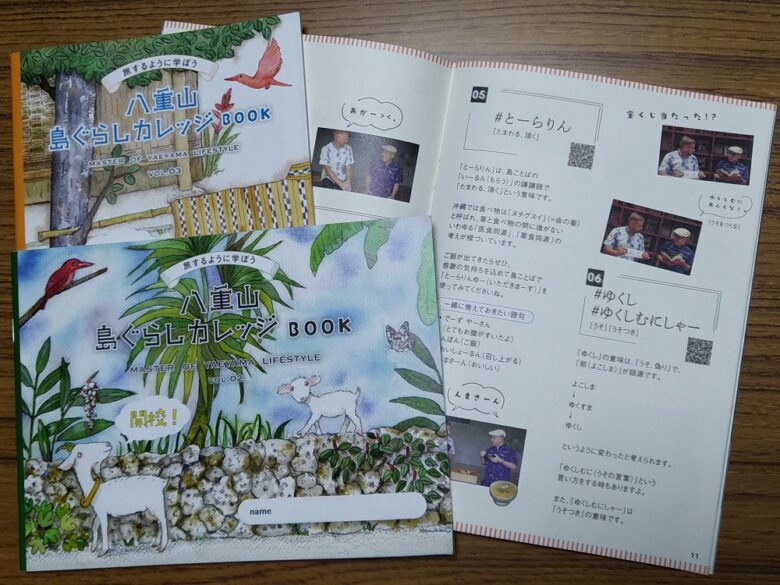 旅するように学ぼう
八重山
島ぐらしカレッジ BOOK
MASTER OF YAEYAMA LIFESTYLE
VOL.03
旅するように学ぼう
八重山
島ぐらしカレッジ BOOK
MASTER OF YAEYAMA LIFESTYLE
VOL.02
開校!
name
あがーっく。
05
#とーらりん
[たまわる、頂く]
「とーらりん」は、島ことばの
「いーるん(もらう)」の謙譲語で
「たまわる、頂く」という意味です。
沖縄では食べ物は「ヌチグスイ」(=命の薬)
と呼ばれ、薬と食べ物の間に境がない
いわゆる「医食同源」、「薬食同源」の
考えが根づいています。
ご飯が出てきたらぜひ
感謝の気持ちを込めて島ことばで
「とーらりんゆー(いただきまーす)」を
使ってみてくださいね。
一緒に覚えておきたい語句
でーず やーさん
(とてもお腹がすいたよ)
んぱん(ご飯)
おいしょーるん(召し上がる)
まさーん(おいしい)
んまさーん
宝くじ当たった!?
ゆくしむに
あんくな!
(うそをつくな)
06
#ゆくし
#ゆくしむにしゃー
[うそ][うそつき]
「ゆくし」の意味は、「うそ、偽り」で、
「邪(よこしま)」が語源です。
よこしま
↓
ゆくすま
↓
ゆくし
というように変わったと考えられます。
「ゆくしむに(うその言葉)」という
言い方をする時もありますよ。
また、「ゆくしむにしゃー」は
「うそつき」の意味です。
11